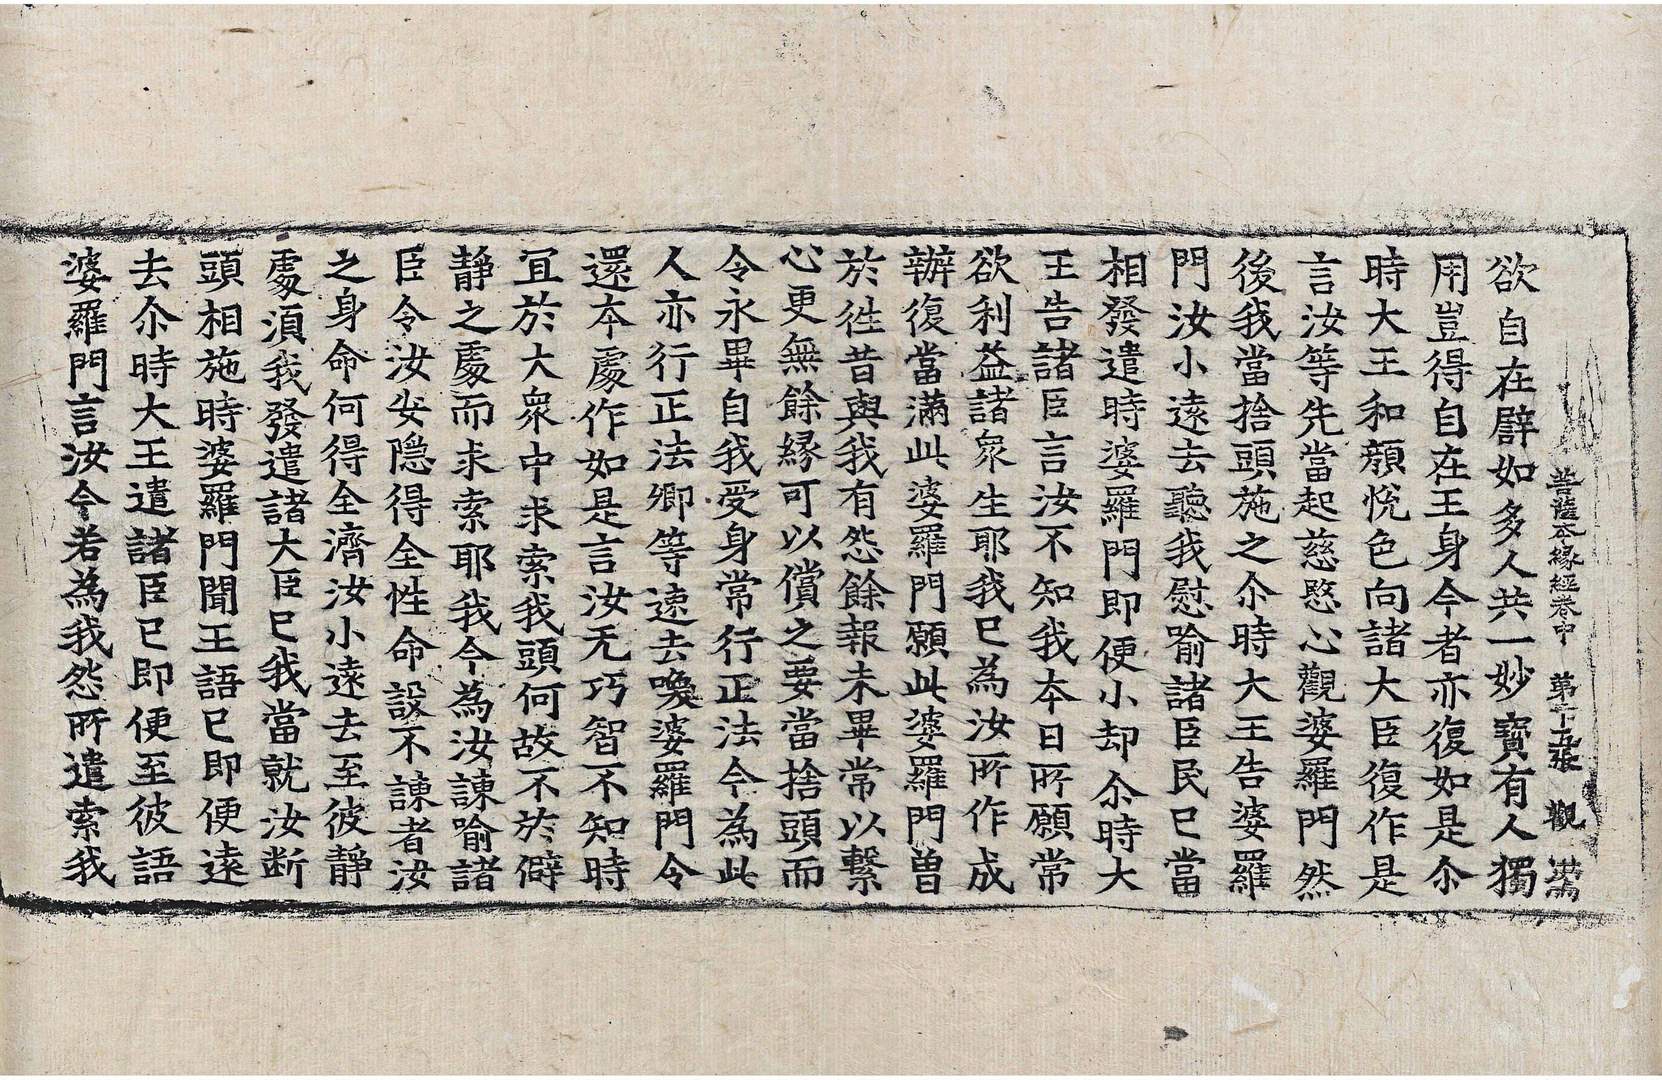 菩薩本緣經卷中 第十五張 觀
欲自在譬如多人共一妙寶有人獨
用豈得自在王身今者亦復如是尒
時大王和顏悅色向諸大臣復作是
言汝等先當起慈愍心觀婆羅門然
後我當捨頭施之尒時大王告婆羅
門汝小遠去聽我慰喻諸臣民已當
相發遣時婆羅門即便小却尒時大
王告諸臣言汝不知我本日所願常
欲利益諸衆生耶我已為汝所作成
辦復當滿此婆羅門願此婆羅門曾
於徃昔與我有怨餘報未畢常以繫
心更無餘緣可以償之要當捨頭而
令永畢自我受身常行正法今為此
人亦行正法卿等速去喚婆羅門令
還本處作如是言汝无巧智不知時
冝於大衆中求索我頭何故不於僻
靜之處而求索耶我今為汝諫喻諸
臣令汝安隱得全性命設不諫者汝
之身命何得全濟汝小遠去至彼靜
處湏我發遣諸大臣已我當就汝断
頭相施時婆羅門聞王語已即便遠
去尒時大王遣諸臣已即便至彼語
婆羅門言汝今若為我怨所遣索我